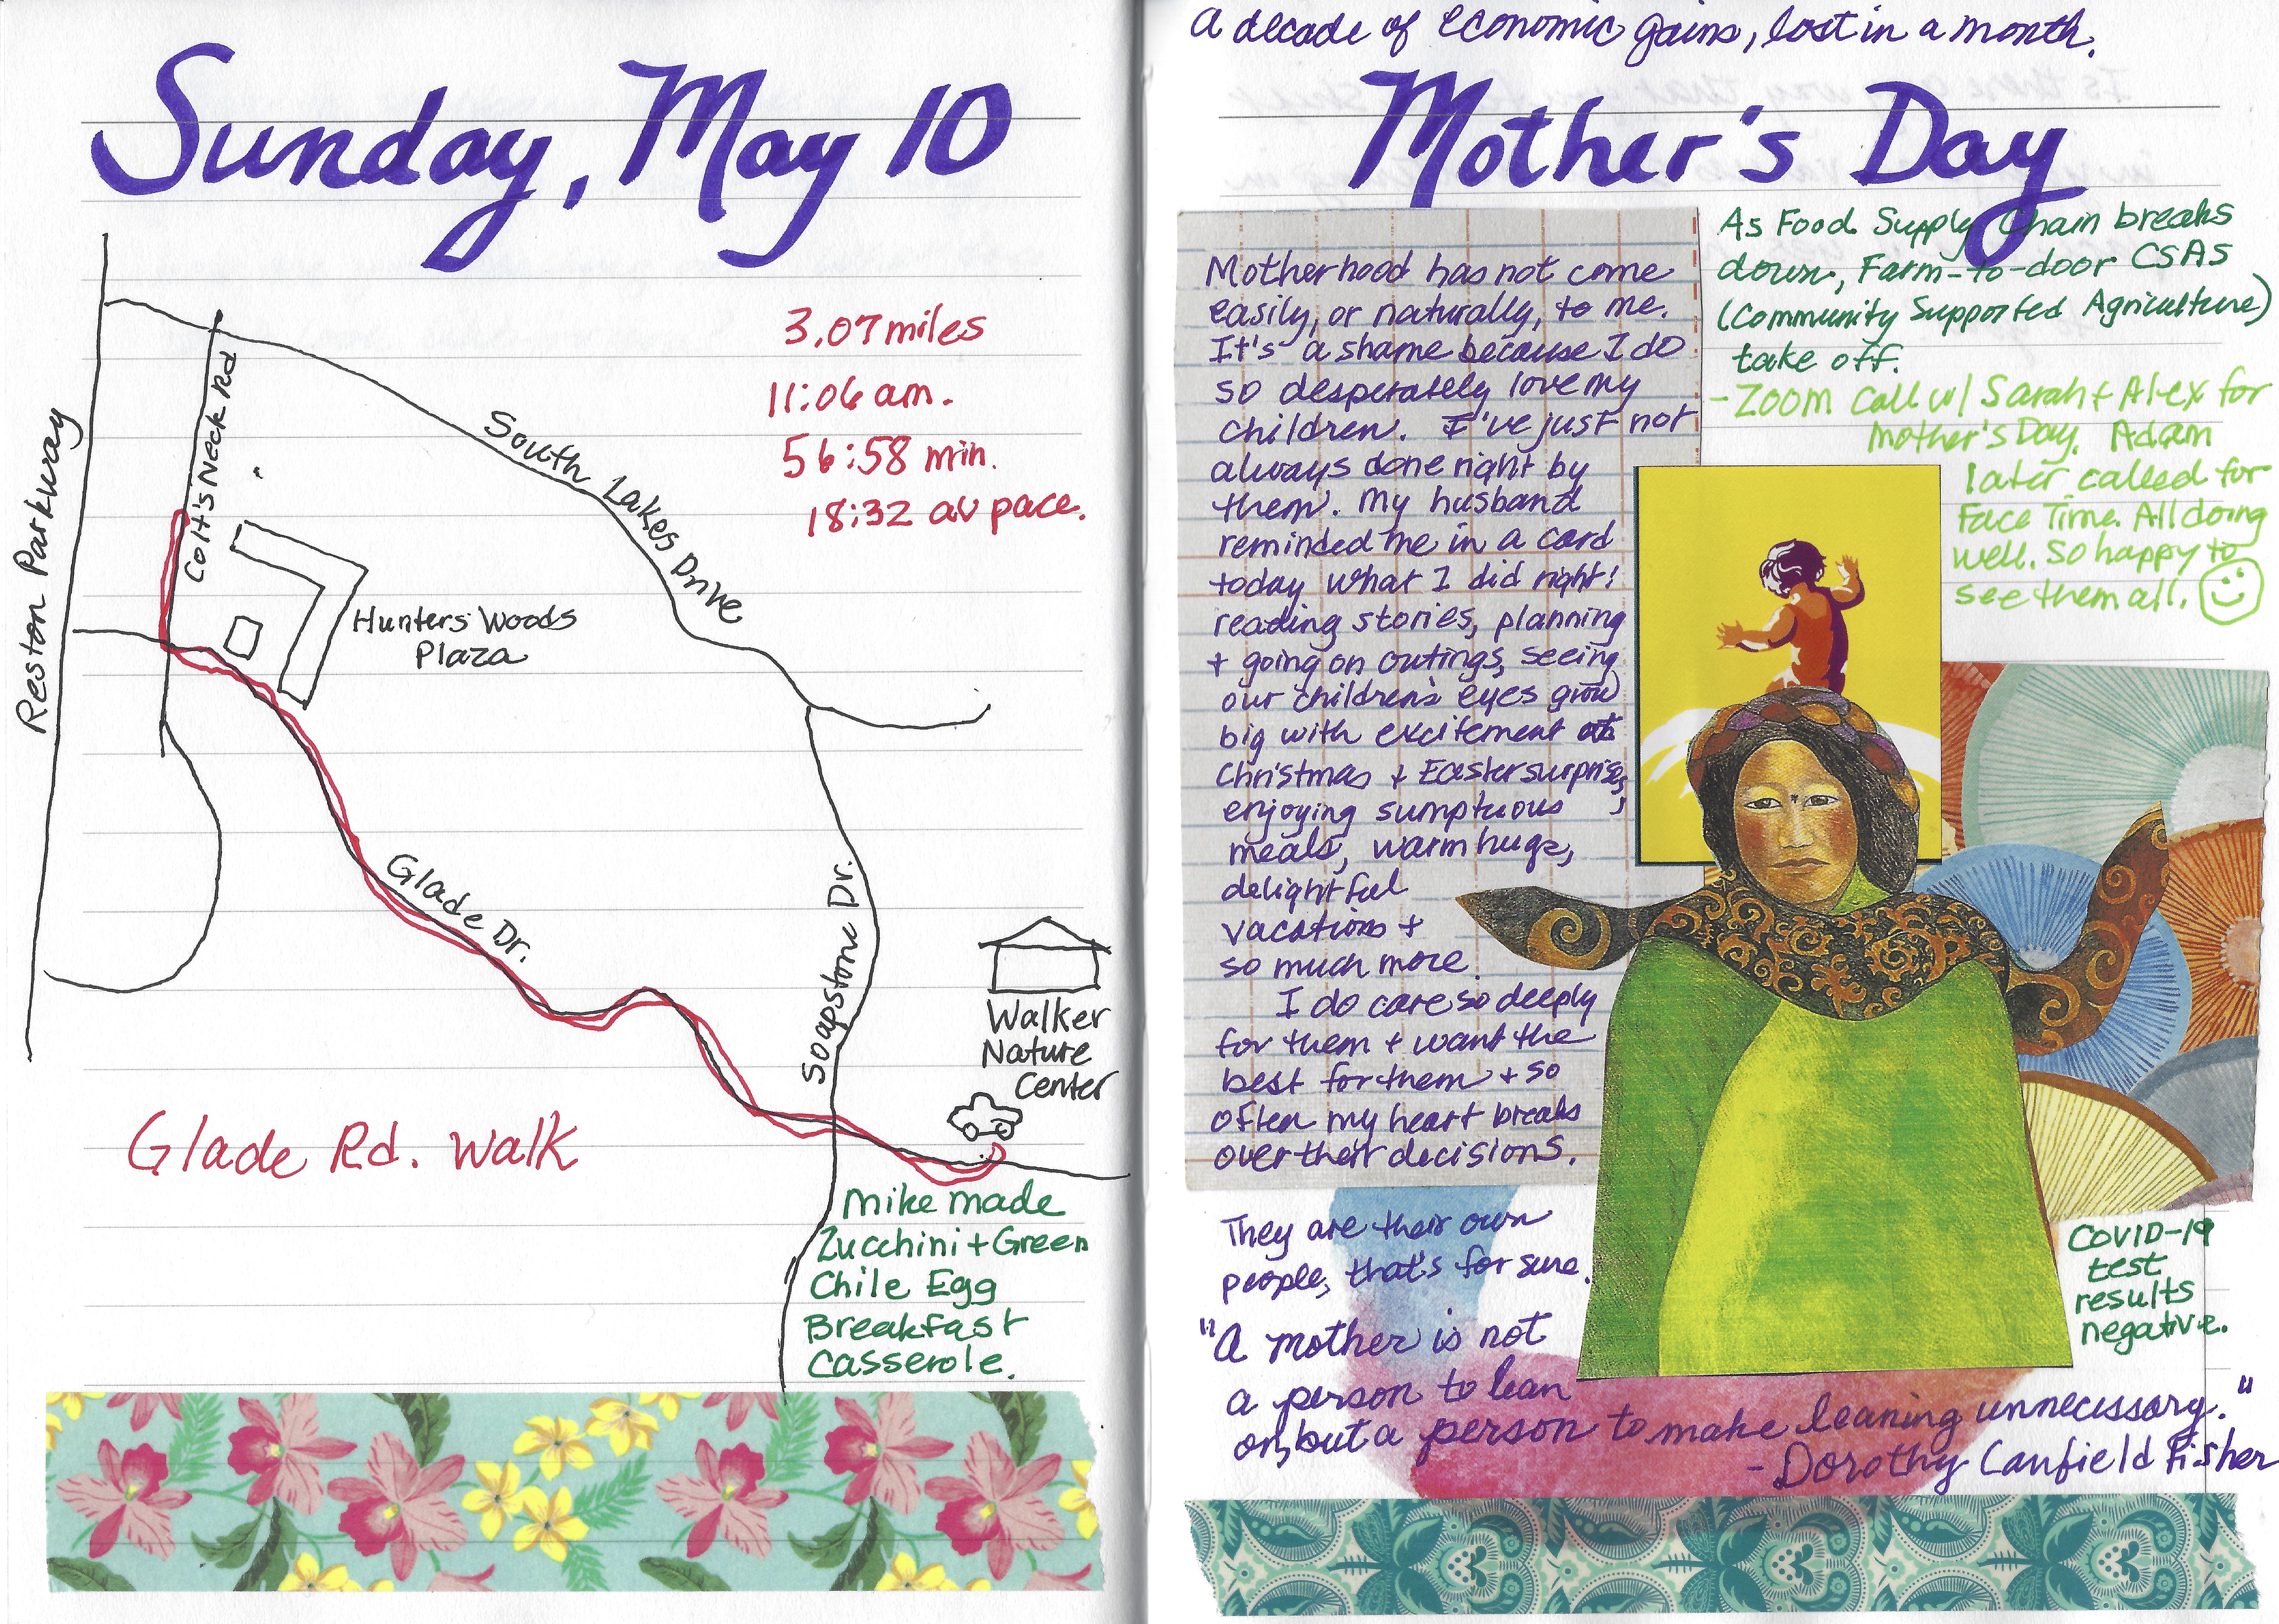 Sunday, May 10
3.07 miles
11:06 am.
56:58 min.
18:32 av pace.
Reston Parkway
Colt's Neck Rd
South Lakes Drive
Hunters Woods
Plaza
Glade Dr.
Soapstone Dr.
Walker
Nature
Center
Glade Rd. Walk
Mike made
Zucchini + Green
Chile Egg
Breakfast
Casserole.
A decade of economic gains, lost in a month.
Mother's Day
Motherhood has not come
easily, or naturally, to me.
It's a shame because I do
so desperately love my
children. I've just not
always done right by
them. My husband
reminded me in a card
today what I did right:
reading stories, planning
+ going on outings, seeing
our children's eyes grow
big with excitement at
Christmas + Easter surprises,
enjoying sumptuous
meals, warm hugs,
delightful
vacations +
so much more.
I do care so deeply
for them + want the
best for them + so
often my heart breaks
over their decisions.
They are their own
people, that's for sure.
As Food Supply Chain breaks
down, Farm-to-door CSAS
(Community Supported Agriculture)
take off.
- ZOOM call w/ Sarah + Alex for
Mother's Day. Adam
later called for
Face Time. All doing
well. So happy to
see them all.
COVID-19
test
results
negative.
"A mother is not
a person to lean
on, but a person to make leaning unnecessary."
- Dorothy Canfield Fisher